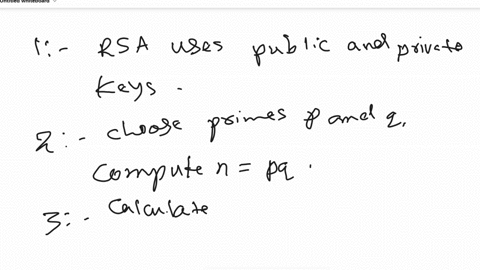 Untitled whiteboard
1:- RSA uses public and private
Keys.
2:- choose primes p and q,
Compute n = pq.
3:- Calculate